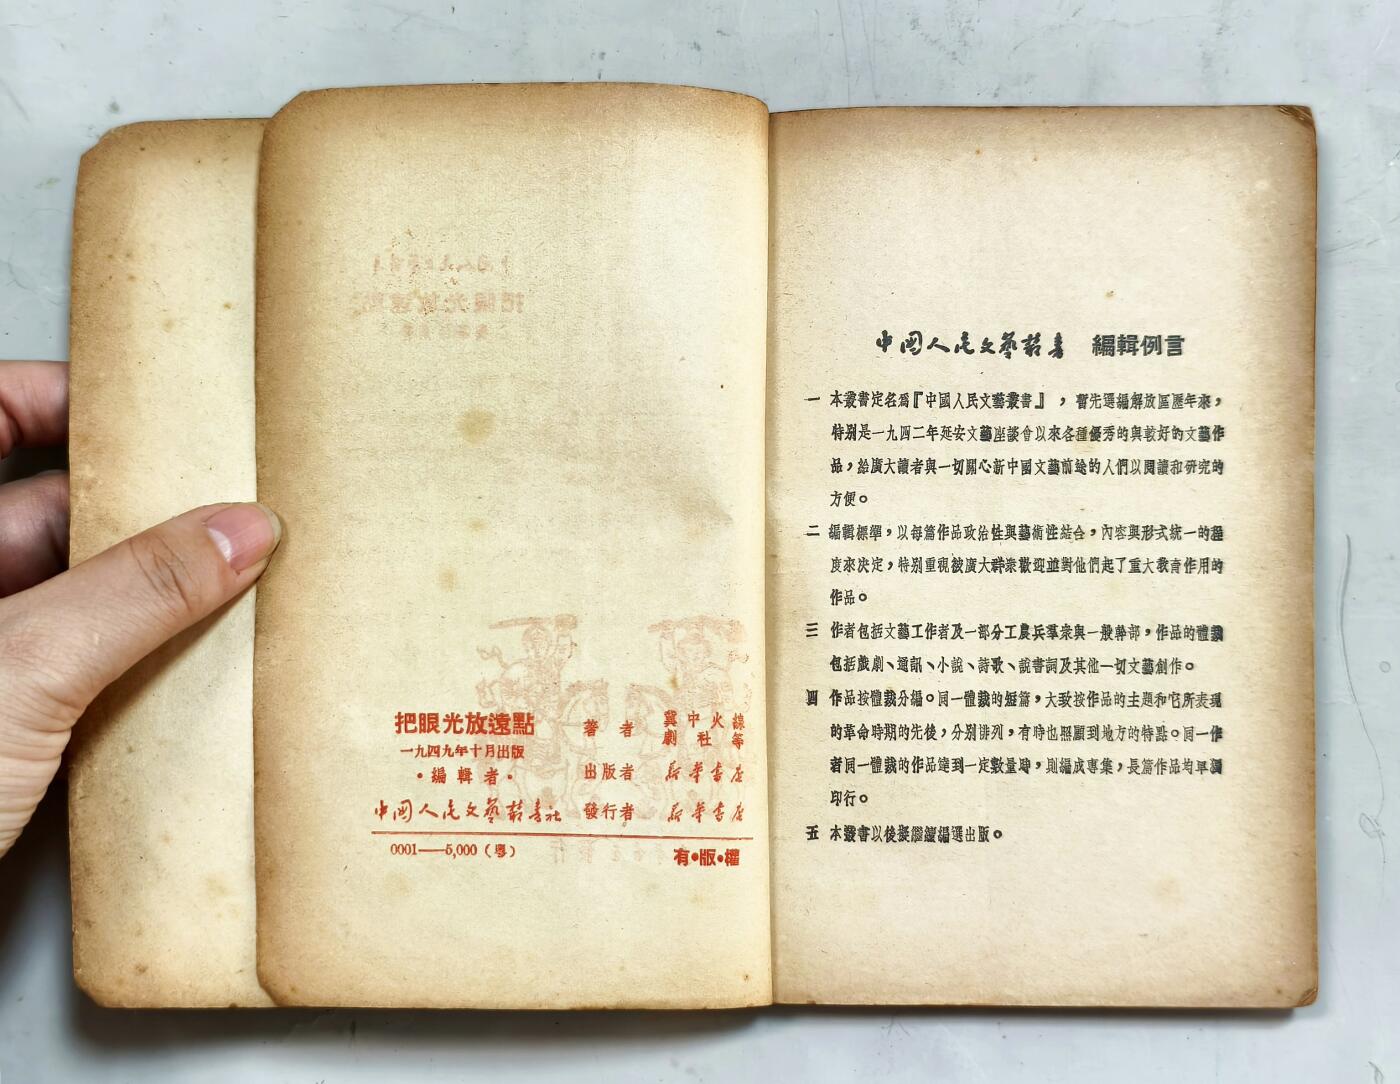 把眼光放遠點
一九四九年十月出版
•編輯者•
中國人民文藝叢書社
著者 冀中火線
劇社等
出版者 新華書店
發行者 新華書店
0001——5,000(粵)
有•版•權
中國人民文藝叢書 編輯例言
一 本叢書定名爲『中國人民文藝叢書』,暫先選編解放區歷年來,
特别是一九四二年延安文藝座談會以來各種優秀的與較好的文藝作
品,給廣大讀者與一切關心新中國文藝前途的人們以閱讀和研究的
方便。
二 編輯標準,以每篇作品政治性與藝術性結合,內容與形式統一的程
度來決定,特别重視被廣大群衆歡迎並對他們起了重大教育作用的
作品。
三 作者包括文藝工作者及一部分工農兵羣衆與一般幹部,作品的體裁
包括戲劇、通訊、小說、詩歌、說書詞及其他一切文藝創作。
四 作品按體裁分編。同一體裁的短篇,大致按作品的主題和它所表現
的革命時期的先後,分别排列,有時也照顧到地方的特點。同一作
者同一體裁的作品達到一定數量時,則編成專集,長篇作品均單獨
印行。
五 本叢書以後擬繼續編選出版。